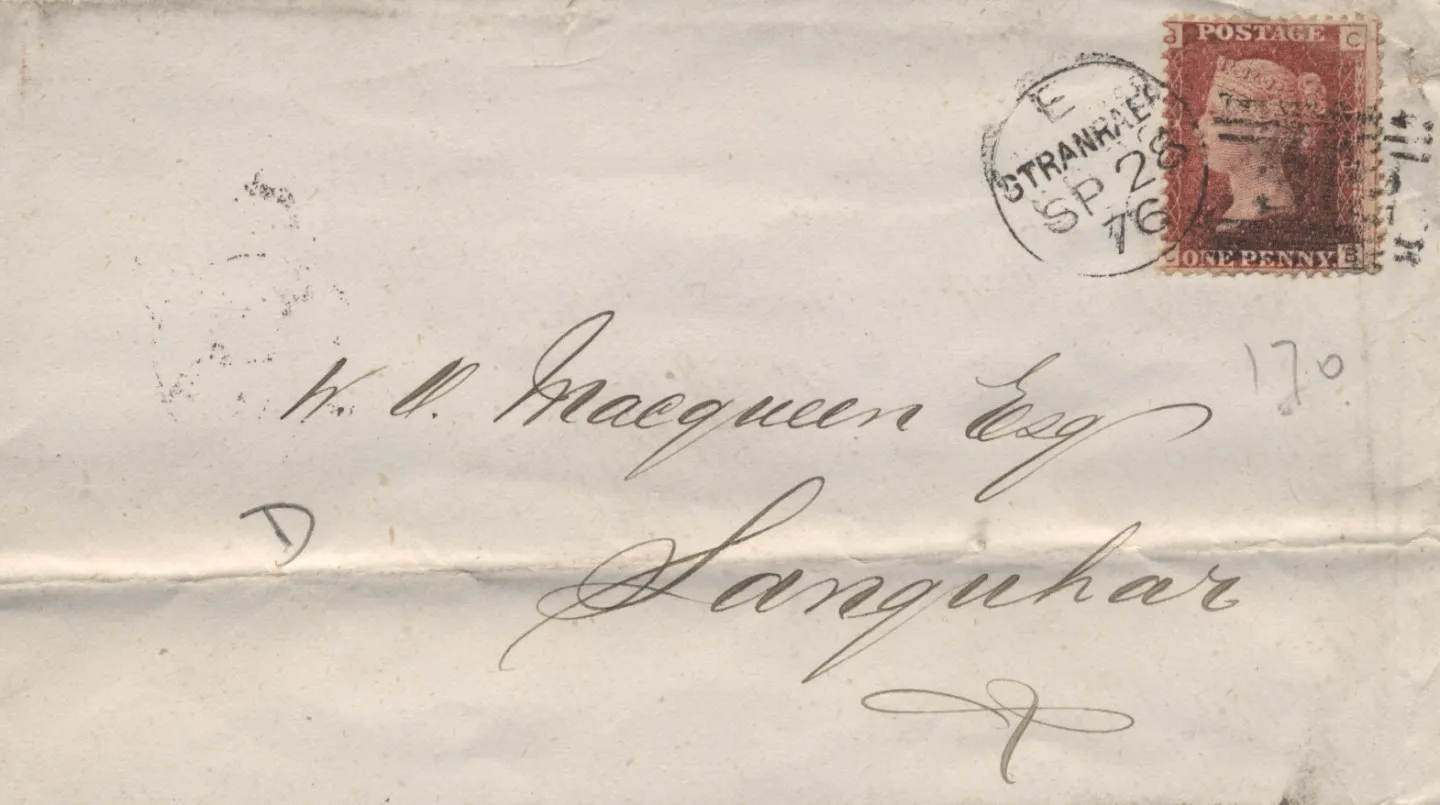 POSTAGE
C
E
STRANRAER
SP 28
76
ONE PENNY.
B
170
W. O. Macqueen Esq
D
Sanquhar